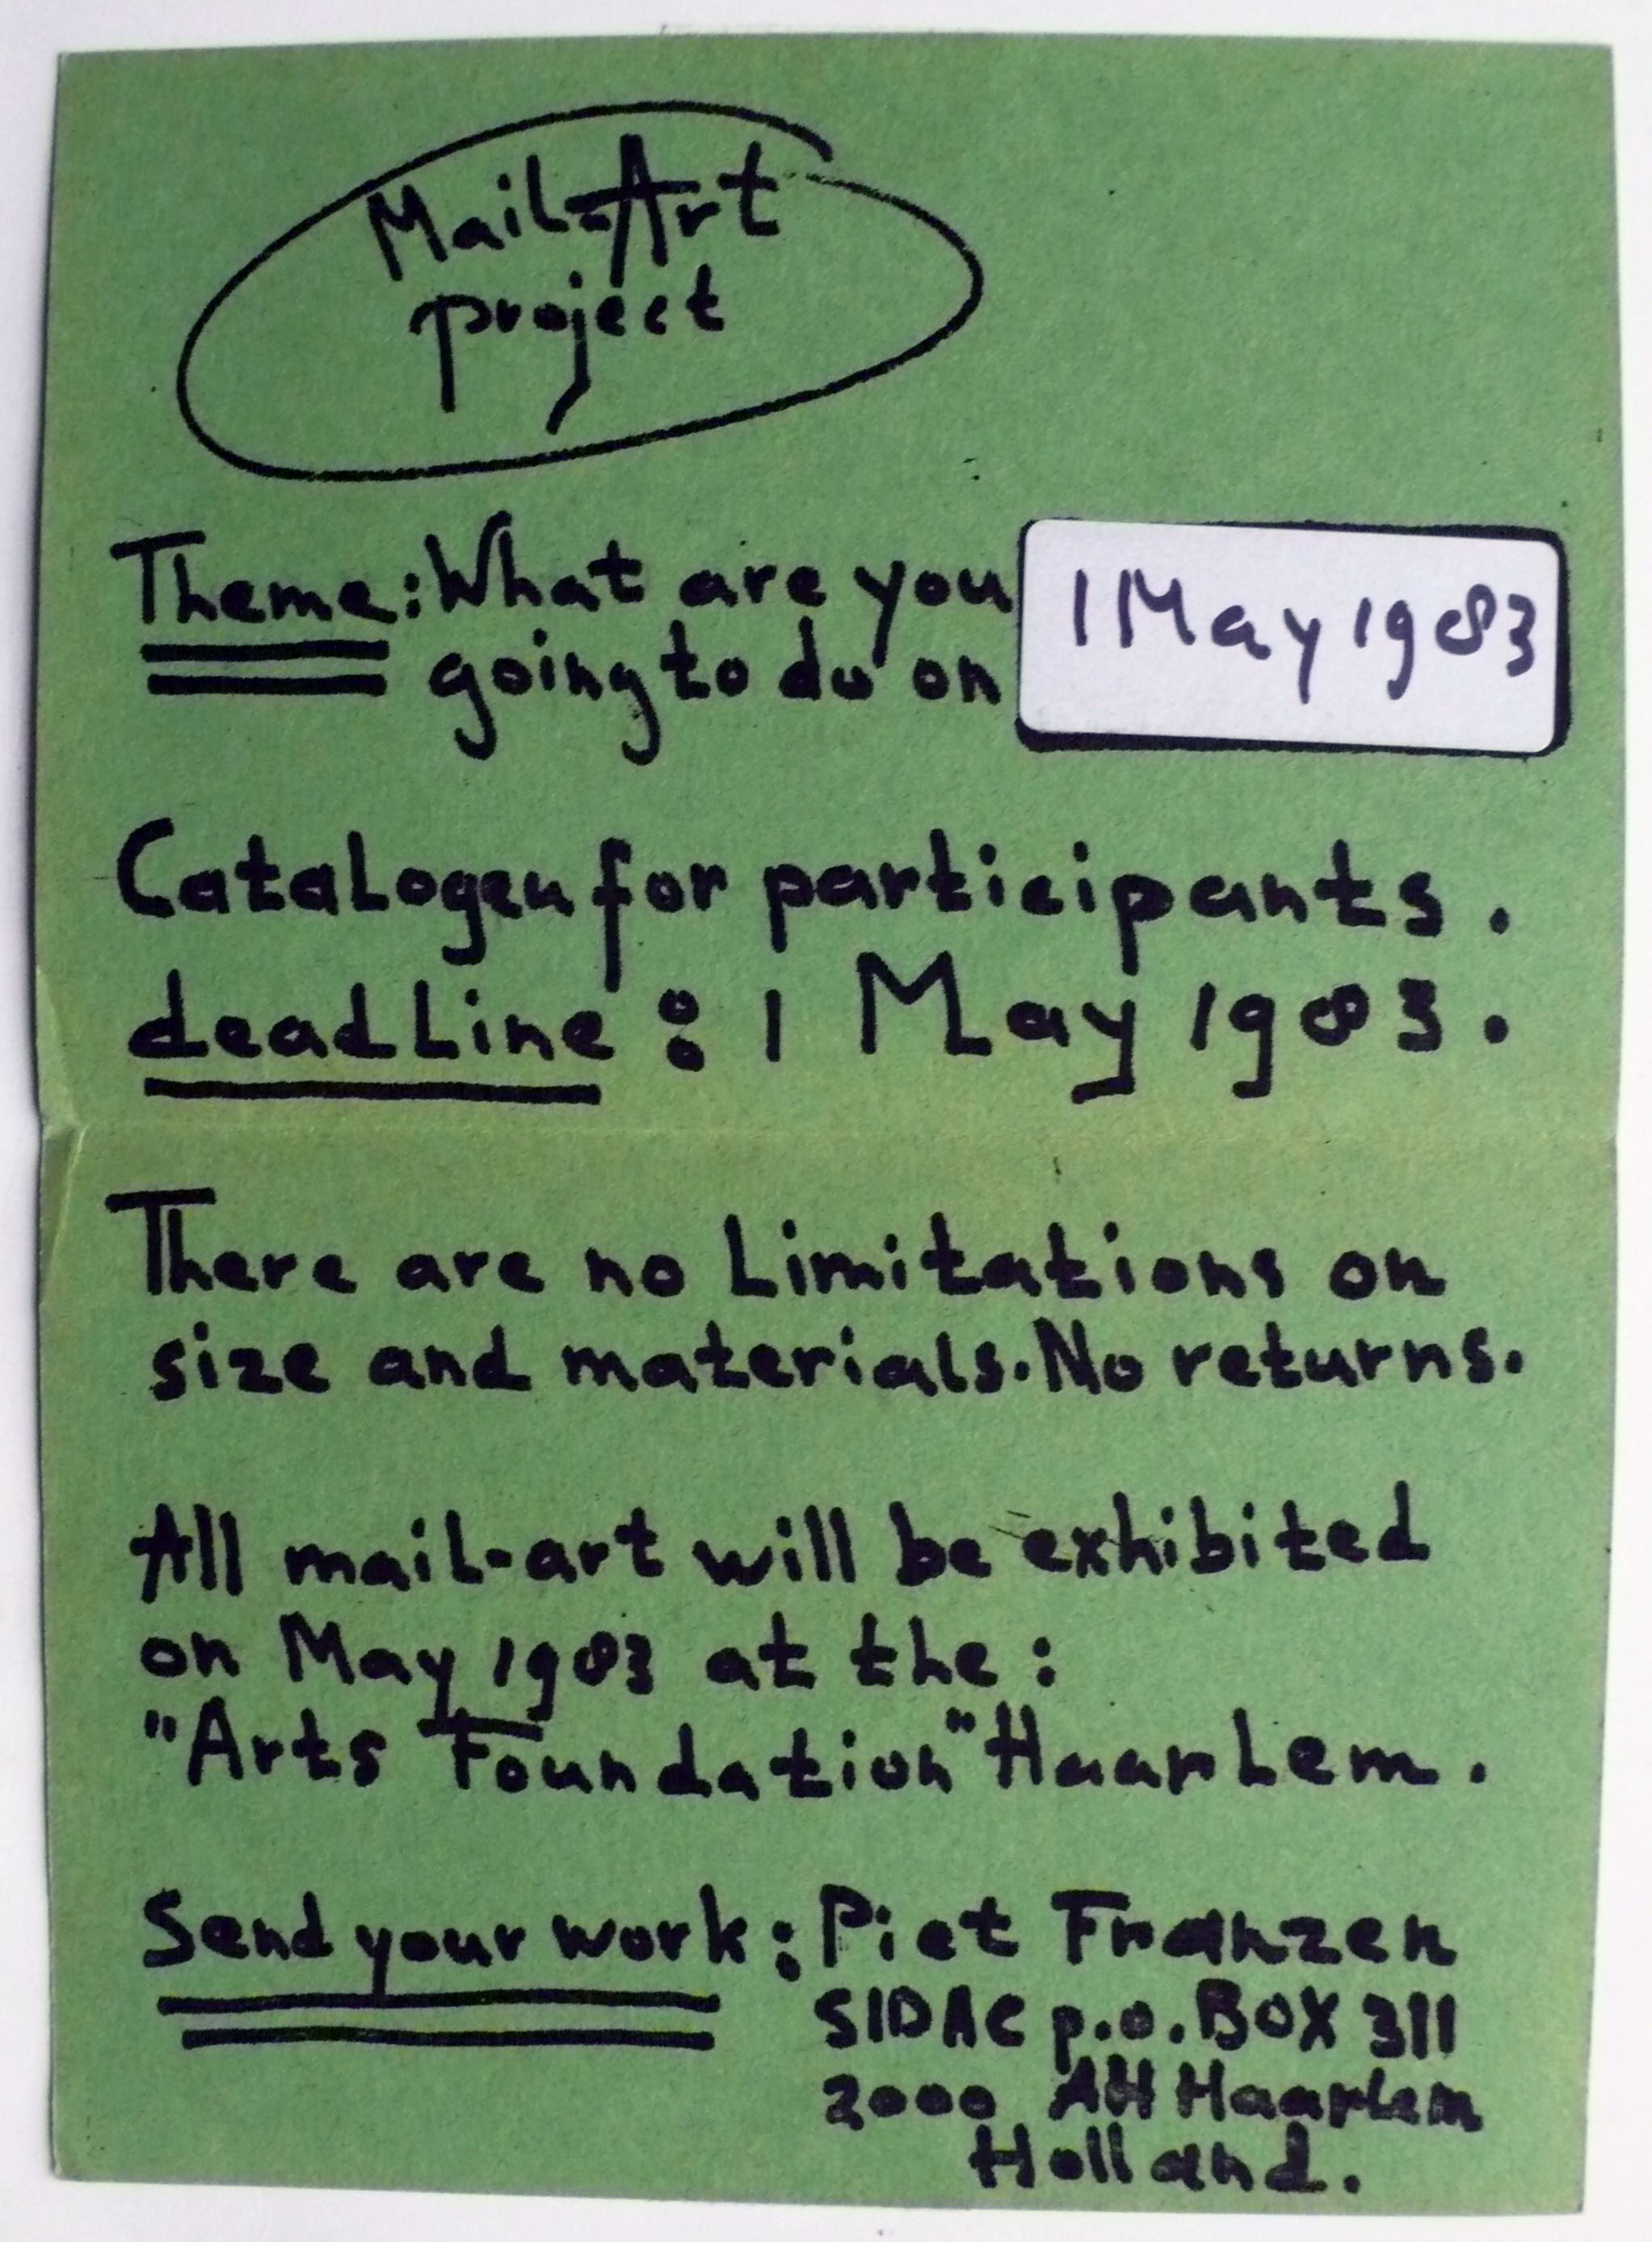 Mail-Art
project
Theme: What are you
going to do on
1 May 1983
Catalogen for participants.
deadline: 1 May 1983.
There are no Limitations on
size and materials. No returns.
All mail-art will be exhibited
on May 1983 at the:
"Arts Foundation" Haarlem.
Send your work: Piet Franzen
SIDAC p.o. BOX 311
2000 AH Haarlem
Holland.